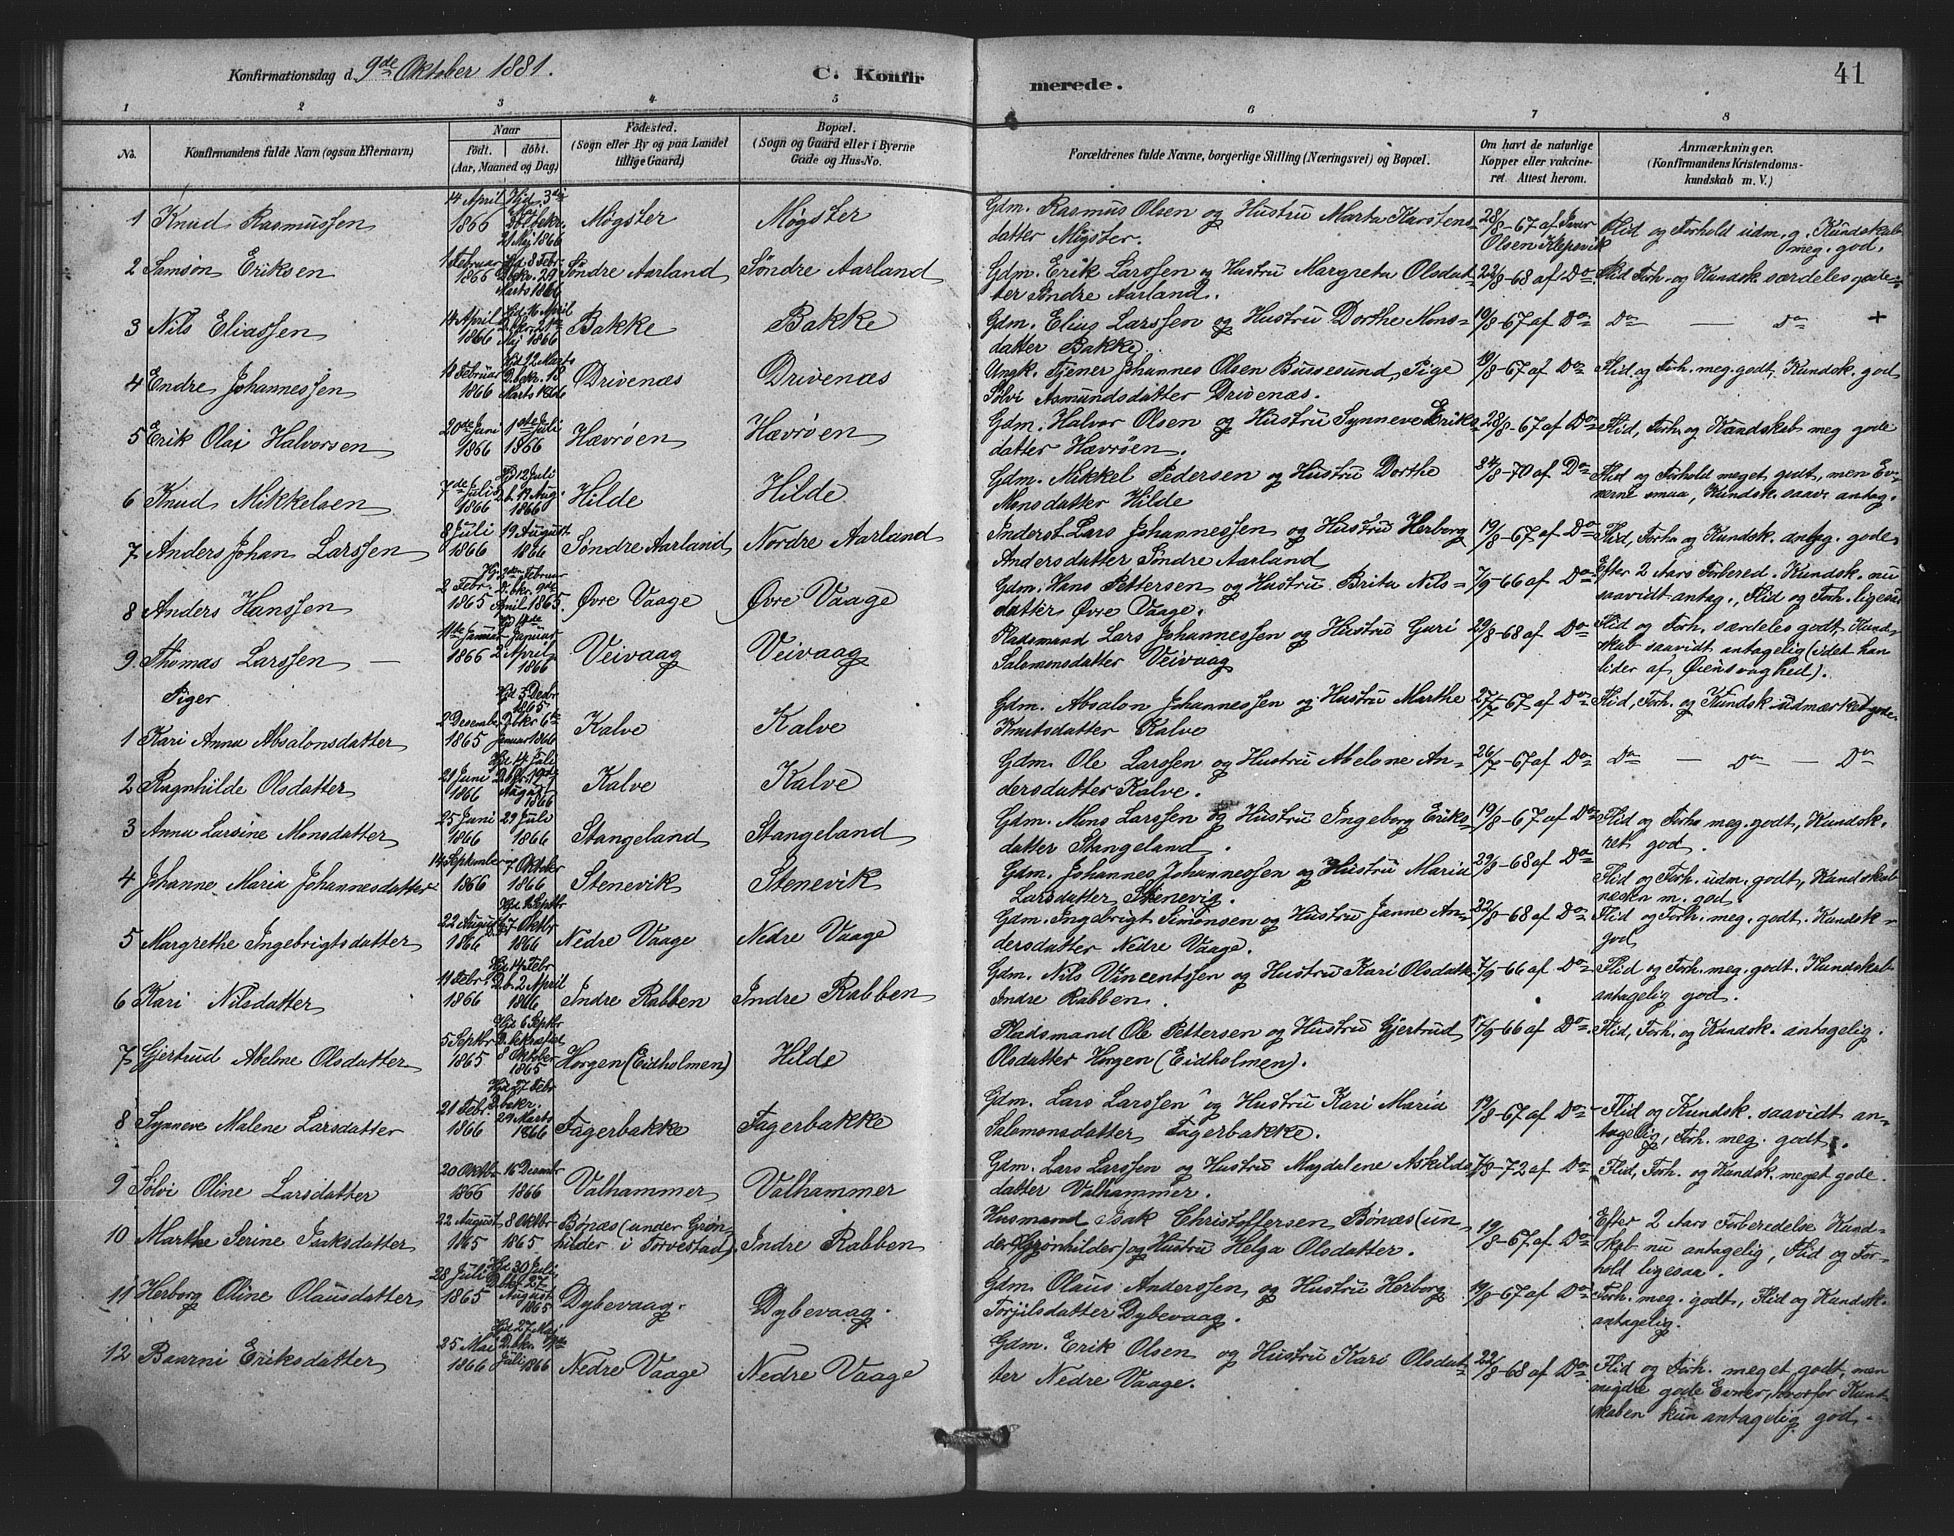 Konfirmationsdag d. 9de Oktober 1881. C. Konfir
merede. 41
1 2 3 4 5 6 7 8
No. Konfirmandens fulde Navn (ogsaa Efternavn)
Naar
født. døbt.
(Aar, Maaned og Dag)
Fødested.
(Sogn eller By og paa Landet
tillige Gaard)
Bopæl.
(Sogn og Gaard eller i Byerne
Gade og Hus-No.
Forældrenes fulde Navne, borgerlige Stilling (Næringsvei) og Bopæl.
Om havt de naturlige
Kopper eller vakcine-
ret. Attest herom.
Anmærkninger.
(Konfirmandens Kristendoms-
kundskab m. V.)
1 Knud Rasmussen
14 April 1866
Hjd. 3die
Dbf. bekr.
21 Mej 1866
Møgster Møgster
Gdm. Rasmus Olsen og Hustru Marta Karstens
datter Møgster.
28/8-67 af Ivar
Olsen Klepsvik
Flid og Forhold udm. g. Kundskab
meg. god.
2 Samson Eriksen
1 Februar 1866
Hjd 8 Febr.
D. bekr. 29
Marts 1866
Søndre Aarland Søndre Aarland
Gdm. Erik Larssen og Hustru Margreta Olsdat-
ter Søndre Aarland.
22/8-68 af Do
Flid Forh. og Kundsk særdeles gode
3 Nils Eliassen
14 April 1866
Hjd 16 April
D. bkr. 21
Mej 1866
Bakke Bakke
Gdm. Elias Larssen og Hustru Dorthe Mons-
datter Bakke
19/8-67 af Do
Do — Do +
4 Endre Johannessen
11 Februar 1866
Hjd 12 Marts
D. bkr. 18
Marts
Drivenæs Drivenæs
Ungk. Tjener Johannes Olsen Bussesund, Pige
Sølvi Asmundsdatter Drivenæs.
19/8-67 af Do
Flid og Forh. meg. godt, Kundsk. god
5 Erik Olai Halvorsen
20de Juni 1866
1ste Juli 1866
Hævrøen Hævrøen
Gdm. Halvor Olsen og Hustru Synneve Eriks-
datter Hævrøen.
28/8-67 af Do
Flid, Forh. og Kundskab meg gode
6 Knud Mikkelsen
7de Juli 1866
Hjd 12 Juli
D. b. 19 Aug.
1866
Hilde Hilde
Gdm. Mikkel Pedersen og Hustru Dorthe
Monsdatter Hilde
24/8-70 af Do
Flid og Forhold meget godt, men Ev-
nerne smaa, Kundsk. saav. antag.
7 Anders Johan Larssen
8 Juli 1866
19 August 1866
Søndre Aarland Nordre Aarland
Inderst Lars Johannessen og Hustru Herborg
Andersdatter Søndre Aarland
19/8-67 af Do
Flid, Forh. og Kundsk. antag. gode
8 Anders Hanssen
2 Febr. 1865
Februar
D. bkr. 9de
April 1865.
Øvre Vaage Øvre Vaage
Gdm. Hans Pettersen og Hustru Brita Nils-
datter Øvre Vaage.
7/9-66 af Do
Efter 2 Aars Forbered. Kundsk. nu
saavidt antag., Flid og Forh. ligesaa
9 Thomas Larssen —
11te Januar 1866
Januar
2 April 1866
Veivaag Veivaag
Pladsmand Lars Johannessen og Hustru Guri
Salomonsdatter Veivaag
29/8-68 af Do
Flid og Forh. særdeles godt, Kund-
skab saavidt antagelig (idet han
lider af Øiensvaghed).
Piger
1 Kari Anna Absalonsdatter
2 Desember 1865
Hjd 3 Decbr
1865
D. bkr 6te
Januar 1866
Kalve Kalve
Gdm. Absalon Johannessen og Hustru Marthe
Knutsdatter Kalve
27/7-67 af Do
Flid, Forh. og Kundsk udmærket gode
2 Ragnhilde Olsdatter
21 Juni 1866
Juli
D. bkr. 19de
August 1866
Kalve Kalve
Gdm. Ole Larssen og Hustru Abelone An-
dersdatter Kalve.
26/7-67 af Do
Do — Do — Do
3 Anna Larsine Monsdatter
25 Juni 1866
29 Juli 1866
Stangeland Stangeland
Gdm. Mons Larssen og Hustru Ingeborg Eriks-
datter Stangeland.
19/8-67 af Do
Flid og Forh. meg. godt, Kundsk.
ret god.
4 Johanne Maria Johannesdatter
14 September 1866
7 Oktober 1866
Stenevik Stenevik
Gdm. Johannes Johannessen og Hustru Maria
Larsdatter Stenevig.
29/8-68 af Do
Flid og Forh. udm. godt, Kundskab
næsten m. god.
5 Margrethe Ingebrigtsdatter
22 August 1866
Hjd Septbr
7 Oktbr 1866
Nedre Vaage Nedre Vaage
Gdm. Ingebrigt Simonsen og Hustru Janne An-
dersdatter Nedre Vaage.
22/8-68 af Do
Flid og Forh. meg. godt. Kundsk-
god
6 Kari Nilsdatter
11 Febr. 1866
Hjd 14 Febr
D. b. 2 April
1866
Indre Rabben Indre Rabben
Gdm. Nils Vincentssen og Hustru Kari Olsdatt.
Indre Rabben.
7/9-66 af Do
Flid og Forh. meg. godt. Kundskab
antagelig god.
7 Gjertrud Abelne Olsdatter
5 Septbr 1865
Hjd 6 Septbr
D. bekræftet
8 Oktober
1865
Horgen (Eidholmen) Hilde
Pladsmand Ole Pettersen og Hustru Gjertrud
Olsdatter Horgen (Eidholmen).
7/9-66 af Do
Flid, Forh. og Kundsk. antagelig.
8 Synneve Malene Larsdatter
21 Febr. 1866
Hjd 27 Febr
D. bekr.
29 Marts
1866
Fagerbakke Fagerbakke
Gdm. Lars Larssen og Hustru Kari Maria
Salomonsdatter Fagerbakke.
19/8-67 af Do
Flid og Kundsk. saavidt an-
tagelig, Forh. meg. godt.
9 Sølvi Oline Larsdatter
20 Oktbr 1866
16 Decembr 1866
Valhammer Valhammer
Gdm. Lars Larssen og Hustru Magdalene Askilds
datter Valhammer.
7/8-72 af Do
Flid, Forh. og Kundsk. meget gode.
10 Marthe Serine Isaksdatter
22 August 1865
8 Oktbr 1865
Bønæs (under Grøn-
hilder i Torvestad) Indre Rabben
Husmand Isak Christoffersen Bønæs (un-
der Grønhilder) og Hustru Helga Olsdatter.
19/8-67 af Do
Efter 2 Aars Forberedelse Kund-
skab nu antagelig, Flid og For-
hold ligesaa.
11 Herborg Oline Olausdatter
28 Juli 1865
Hjd 30 Juli,
D. bkf 27
August
1865
Dybevaag. Dybevaag.
Gdm. Olaus Anderssen og Hustru Herborg
Torjilsdatter Dybevaag.
19/8-67 af Do
Forh. meg. godt, Flid og Kundsk.
antagelig.
12 Baarni Eriksdatter
25 Mai 1866
Hjd 27 Mai
Juli 1866
Nedre Vaage Nedre Vaage
Gdm. Erik Olsen og Hustru Kari Olsdat-
ter Nedre Vaage.
22/8-68 af Do
Flid og Forh. meget godt, men
mindre gode Evner, hvorfor Kund-
skaben kun antagelig god.